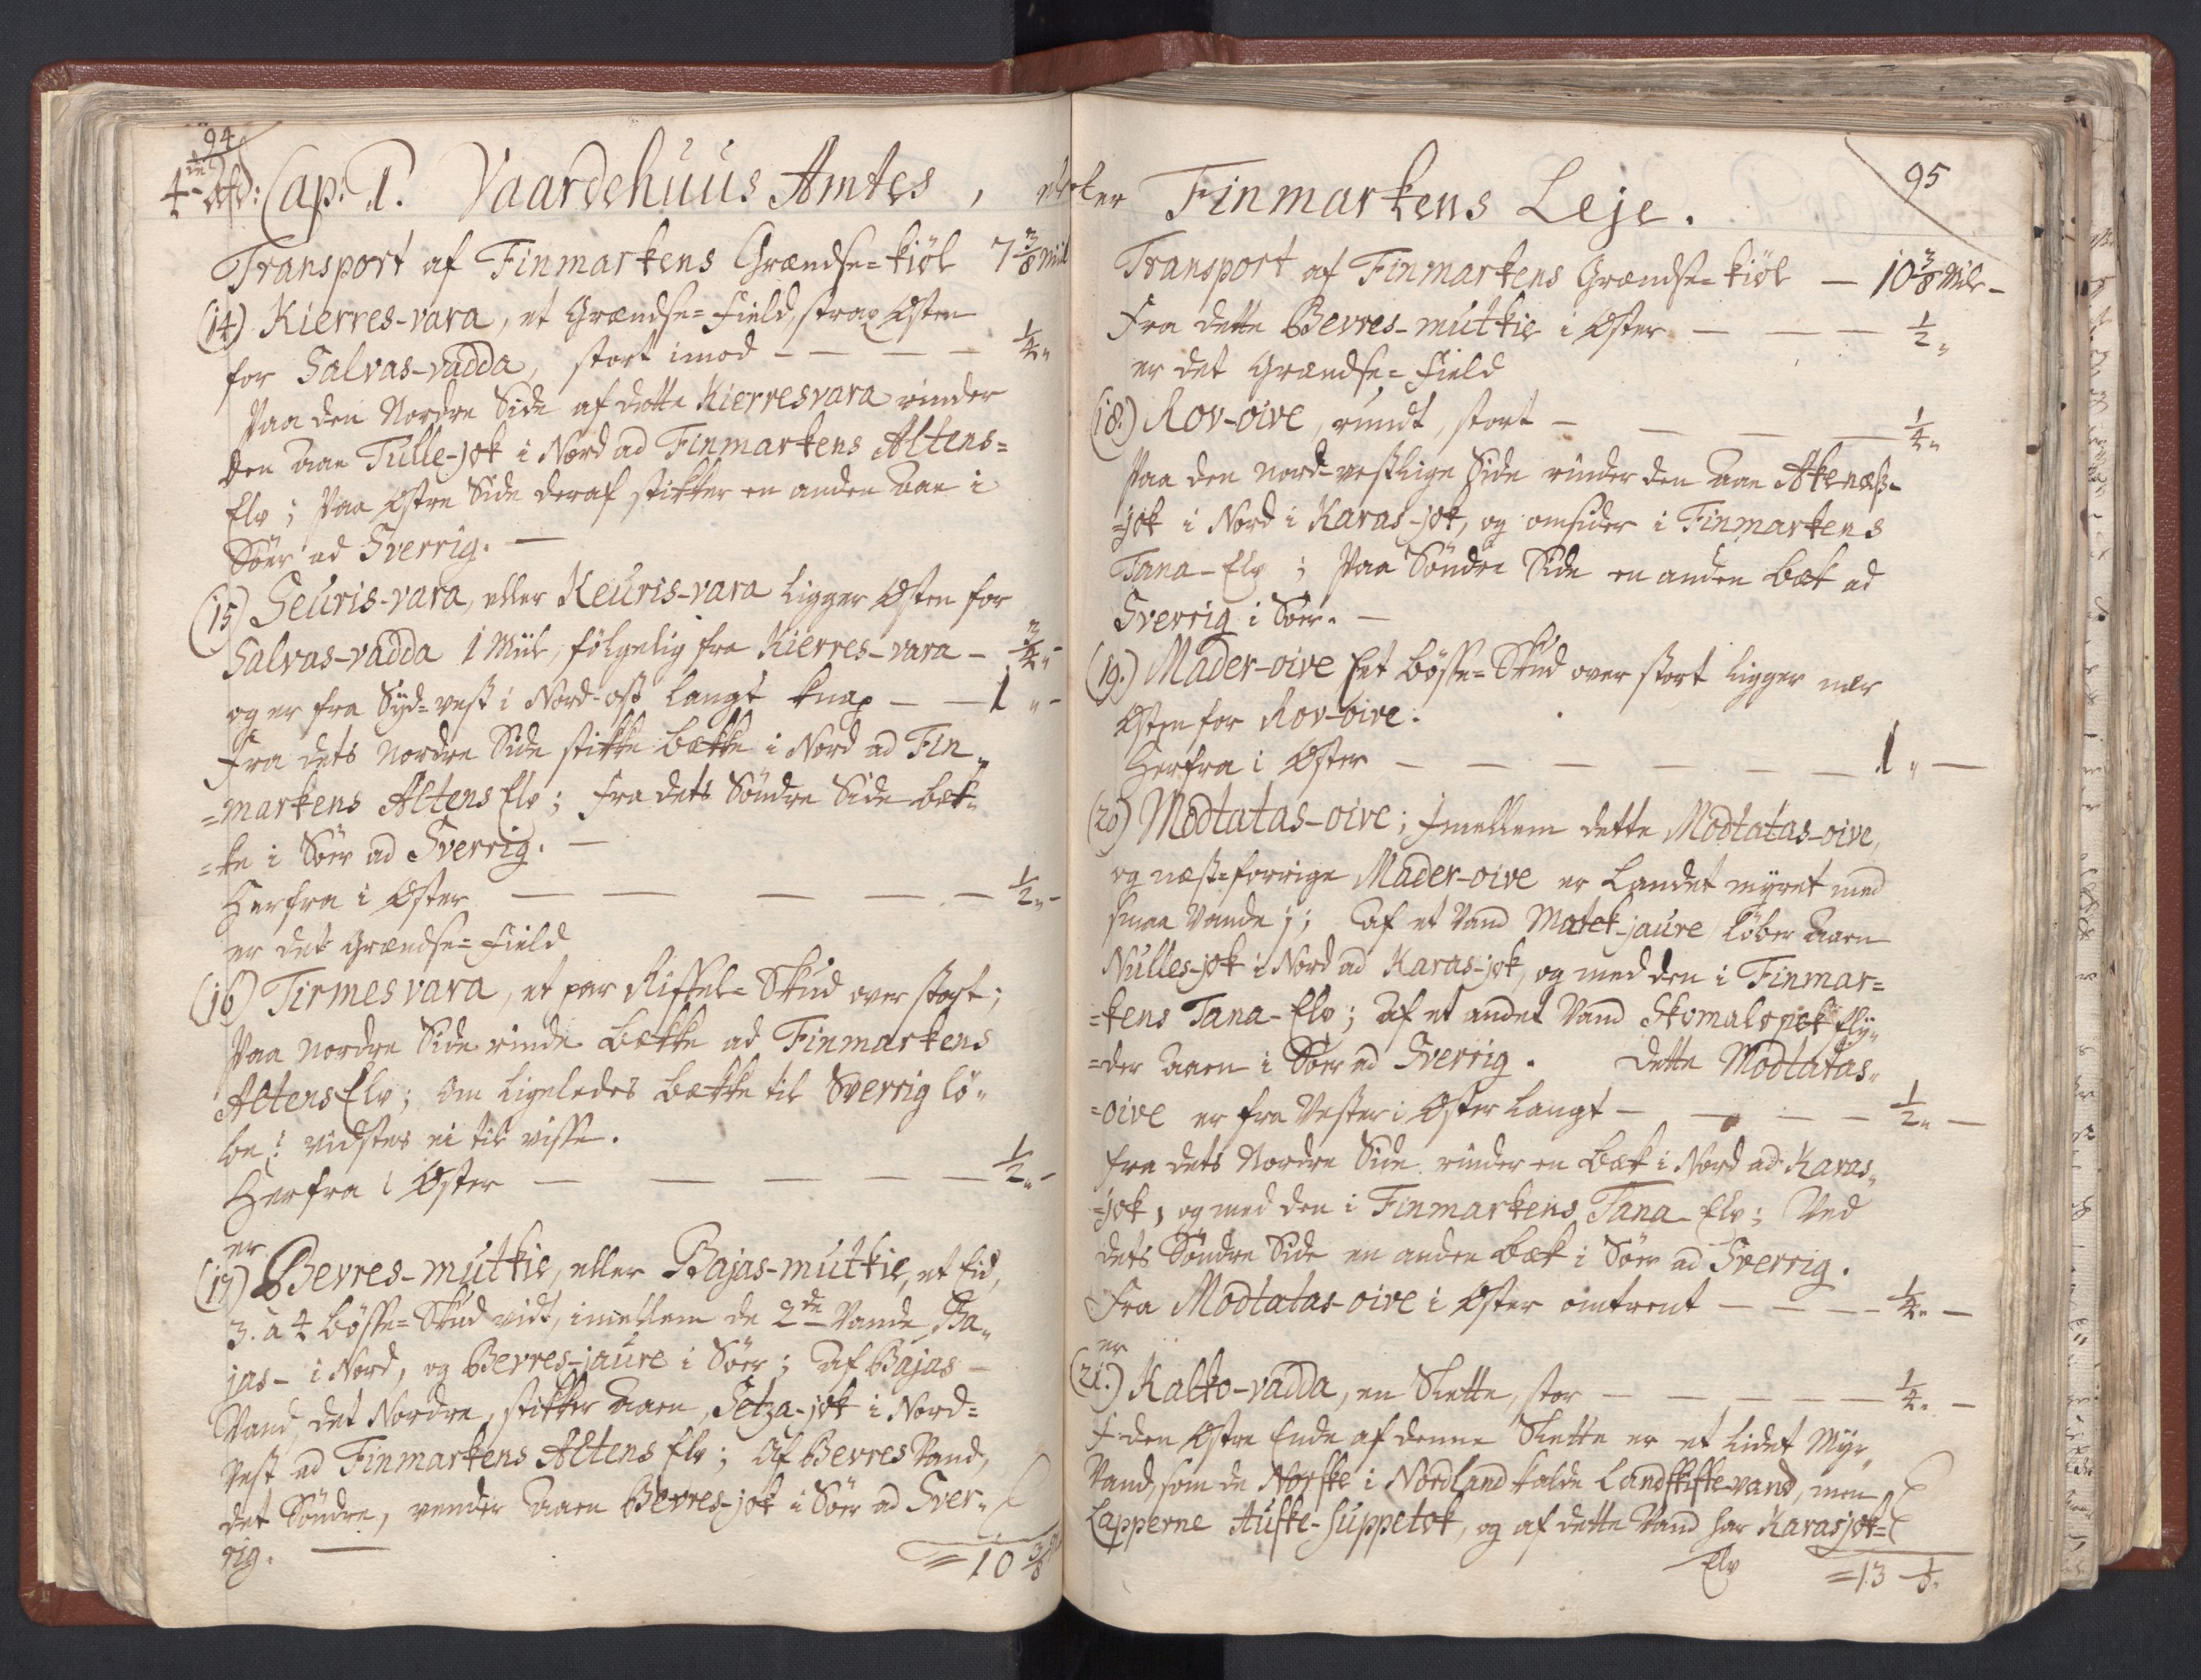 94
4de Afd: Cap: 1. Vaardehuus Amtes, eller
Transport af Finmarkens Grændse=kiöl 7 3/8 Miil
(14) Kierres-vara, et Grændse=Field, strax Østen
for Salvas-vadda, stort imod — — — — 1/4 "
Paa den Nordre Side af dette Kierresvara rinder
den Aae Tulle-jok i Nord ad Finmarkens Altens=
Elv; Paa Østre Side deraf stikker en anden Aae i
Söer ad Sverrig. —
(15) Seuris-vara, eller Keuris-vara ligger Østen for
Salvas-vadda 1 Miil, fölgelig fra Kierres-vara — 3/4 " -
og er fra Syd=vest i Nord-ost langt knap — — 1 " -
Fra dets Nordre Side stikke Bække i Nord ad Fin„
=markens Altens Elv; fra dets Söndre Side Bæk=
=ke i Söer ad Sverrig. —
Herfra i Øster — — — — — 1/2 " -
er det Grændse=Field
(16) Tirmesvara, et par Riffel=Skud over stort;
Paa Nordre Side rinde Bække ad Finmarkens
Altens Elv; Om ligeledes Bække til Sverrig lö„
be? vidstes ei til visse.
Herfra i Øster — — — — — 1/2 " -
er
(17) Bevres-mutkie, eller Bajas-mutkie, et Eid,
3. à 4 bösse=Skud vidt, imellem de 2de Vande Ba„
jas- i Nord, og Bevres-jaure i Söer; Af Bajas-
Vand, det Nordre, stikker Aaen Setza-jok i Nord=
Vest ad Finmarkens Altens Elv; Af Bevres Vand,
det Söndre, render Aaen Bevres-jok i Söer ad Sver„
rig. — = 10 3/8
95
Finmarkens Leje.
Transport af Finmarkens Grændse=kiöl — 10 3/8 Mile -
Fra dette Bevres-mutkie i Øster — — — 1/2 "
er det Grændse=Field
(18.) Rov-oive, rundt, stort — — — — 1/4 "
Paa den Nord-vestlige Side rinder den Aae Akenæss-
=jok i Nord i Karas-jok, og omsider i Finmarkens
Tana-Elv; Paa Söndre Side en anden Bæk ad
Sverrig i Söer. —
(19.) Mader-oive Eet bösse=Skud over stort ligger nær
Østen for Rov-oive.
Herfra i Øster — — — — — — 1 " —
(20) Modtatas-oive; Imellem dette Modtatas-oive,
og næst=forrige Mader-oive er Landet myret med
smaa Vande i; Af et Vand Matek-jaure löber Aaen
Nulles-jok i Nord ad Karas-jok, og med den i Finmar=
=kens Tana-Elv; Af et andet Vand flÿ„
=der Aaen i Söer ad Sverrig. Dette Modtatas„
=oive er fra Vester i Øster langt — — — — 1/2 " —
fra dets Nordre Side rinder en Bæk i Nord ad Karas„
=jok, og med den i Finmarkens Tana-Elv; Ved
dets Söndre Side en anden Bæk i Söer ad Sverrig.
Fra Modtatas-oive i Øster omtrent — — — 1/4 " —
er
(21.) Kalko-vadda, en Slette, stor — — — — — 1/4 " —
I den Østre Ende af denne Slette er et lidet Myr„
Vand, som de Norske i Nordland kalde Landskifte-vand, men
Lapperne Auske-suppetok, og af dette Vand har Karasjok=
Elv = 13 1/8 "